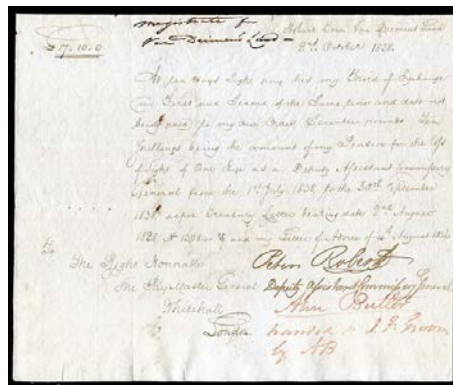 Magistrate for
Van Diemen's Land
Hobart Town Van Diemens Land
£ 17.10.0
2nd October 1838.
At Ten days Sight pay this my Third of Exchange
and Second of the Same tenor and date not
being paid to my own Order Seventeen pounds Ten
Shillings being the amount of my Pension for the loss
of Sight of One Eye as a Deputy Assistant Commissary
General from the 1st July 1838, to the 30th September
1838 as per Treasury Letter bearing date 2nd August
1828 and my Letter of Advice of August
To
The Right Honorable
Peter Roberts
The PayMaster General
Deputy Assistant Commissary General
Whitehall
Ann Butler
London
handed to
by AB